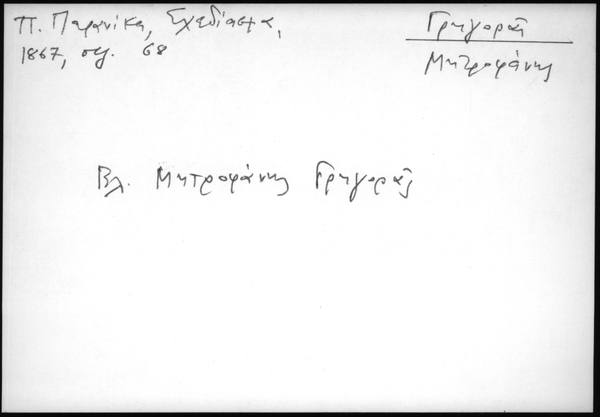 Π. Παρανίκα, Σχεδίασμα,
1867, σελ. 68
Γρηγορᾶς
Μητροφάνης
Βλ. Μητροφάνης Γρηγορᾶς